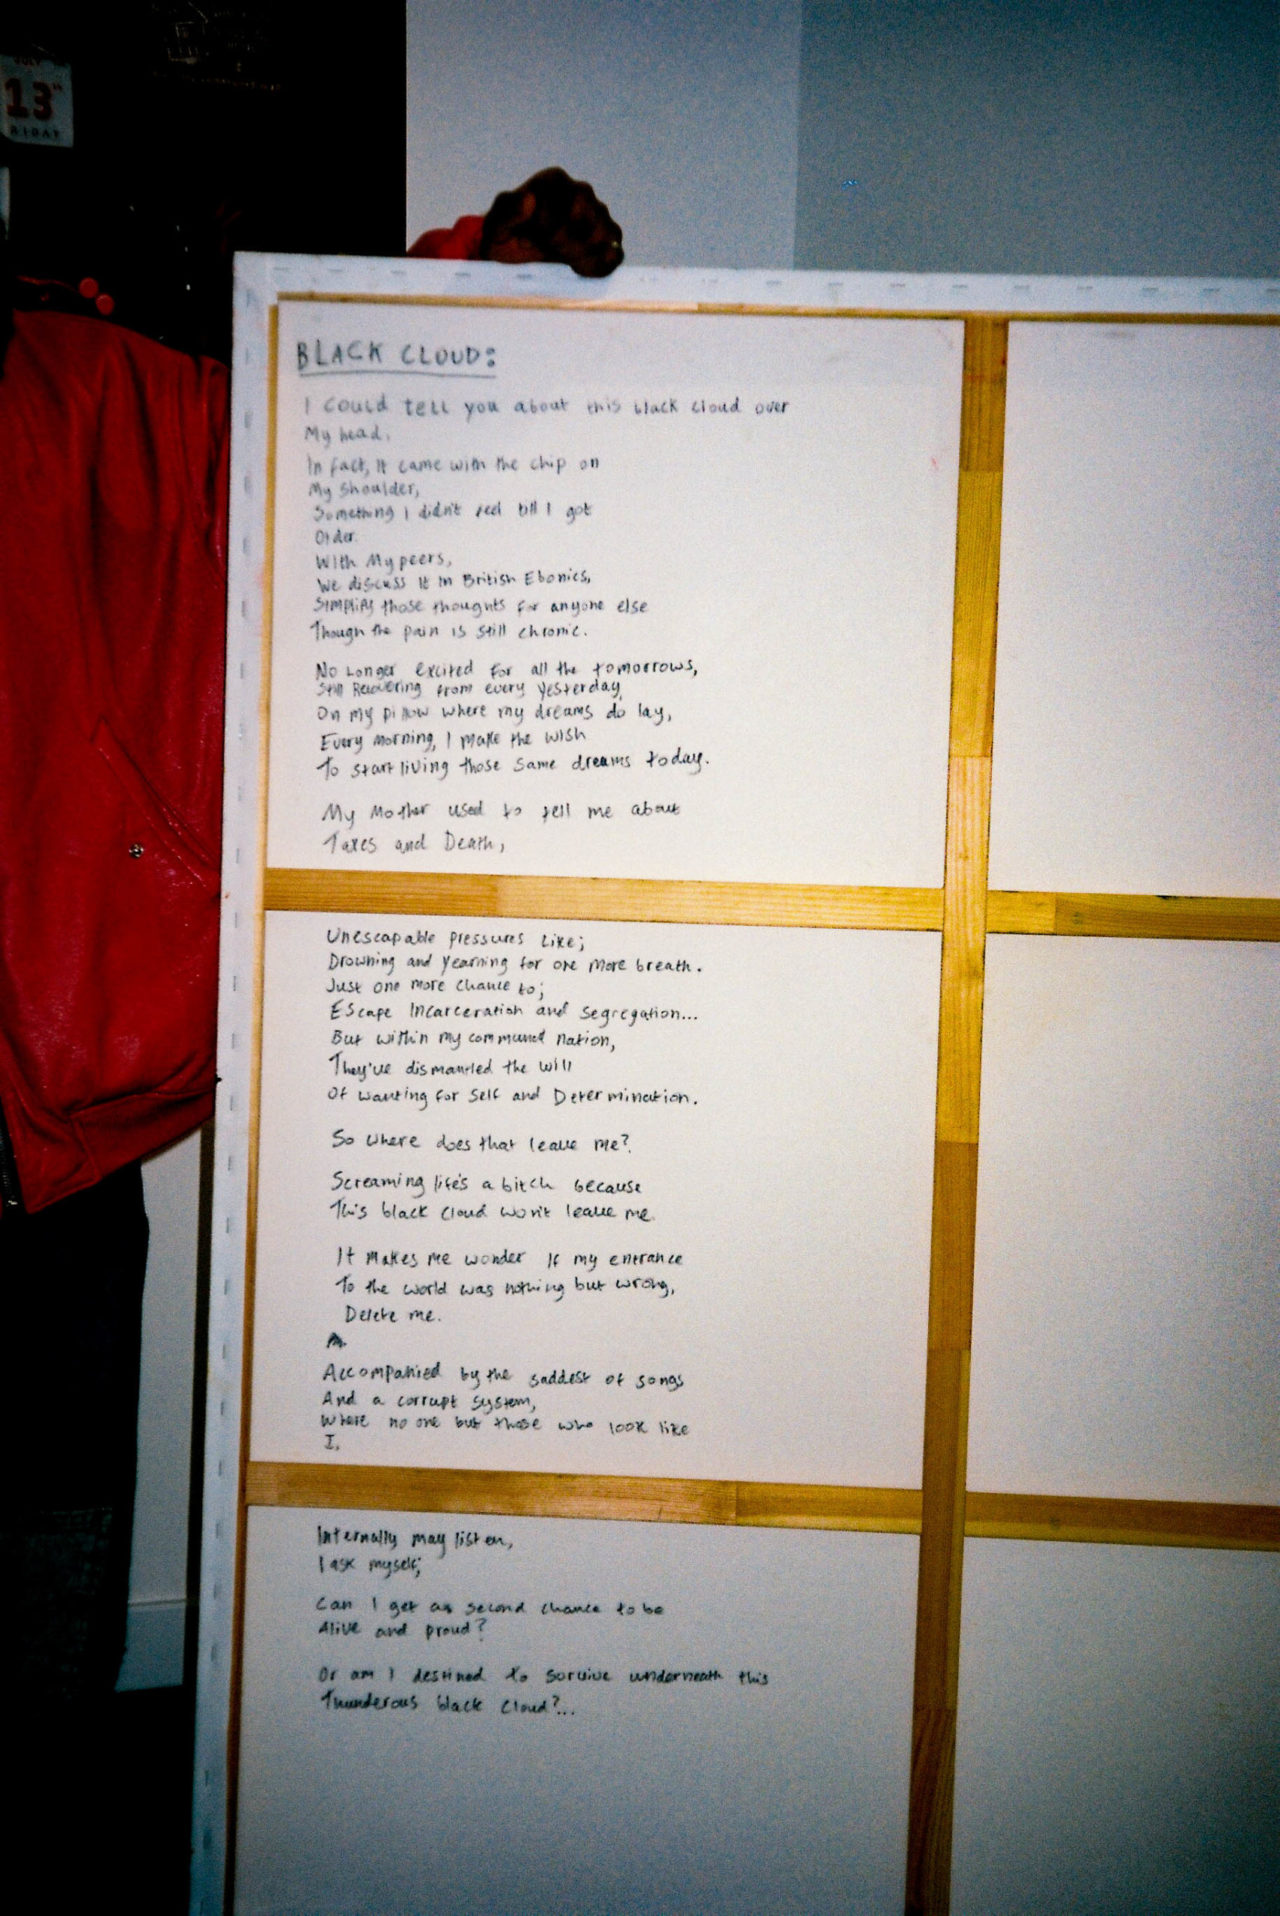 JULY
13TH
RIDAY
BLACK CLOUD:
I could tell you about this black cloud over
My head.
In fact, it came with the chip on
My shoulder,
Something I didn't feel till I got
Older.
With My peers,
We discuss it in British Ebonics,
Simplify those thoughts for anyone else
Though the pain is still chronic.
No Longer excited for all the tomorrows,
Still Recovering from every yesterday,
On my pillow where my dreams do lay,
Every morning, I make the wish
To start living those same dreams today.
My Mother used to tell me about
Taxes and Death,
Unescapable pressures like;
Drowning and yearning for one more breath.
Just one more chance to;
Escape Incarceration and segregation...
But within my communal nation,
They've dismantled the will
Of wanting for Self and Determination.
So where does that leave me?
Screaming life's a bitch because
This black cloud won't leave me.
It makes me wonder if my entrance
To the world was nothing but wrong,
Delete me.
Accompanied by the saddest of songs
And a corrupt system,
Where no one but those who look like
I,
Internally may listen,
I ask myself;
Can I get a second chance to be
Alive and proud?
Or am I destined to survive underneath this
Thunderous black cloud?...